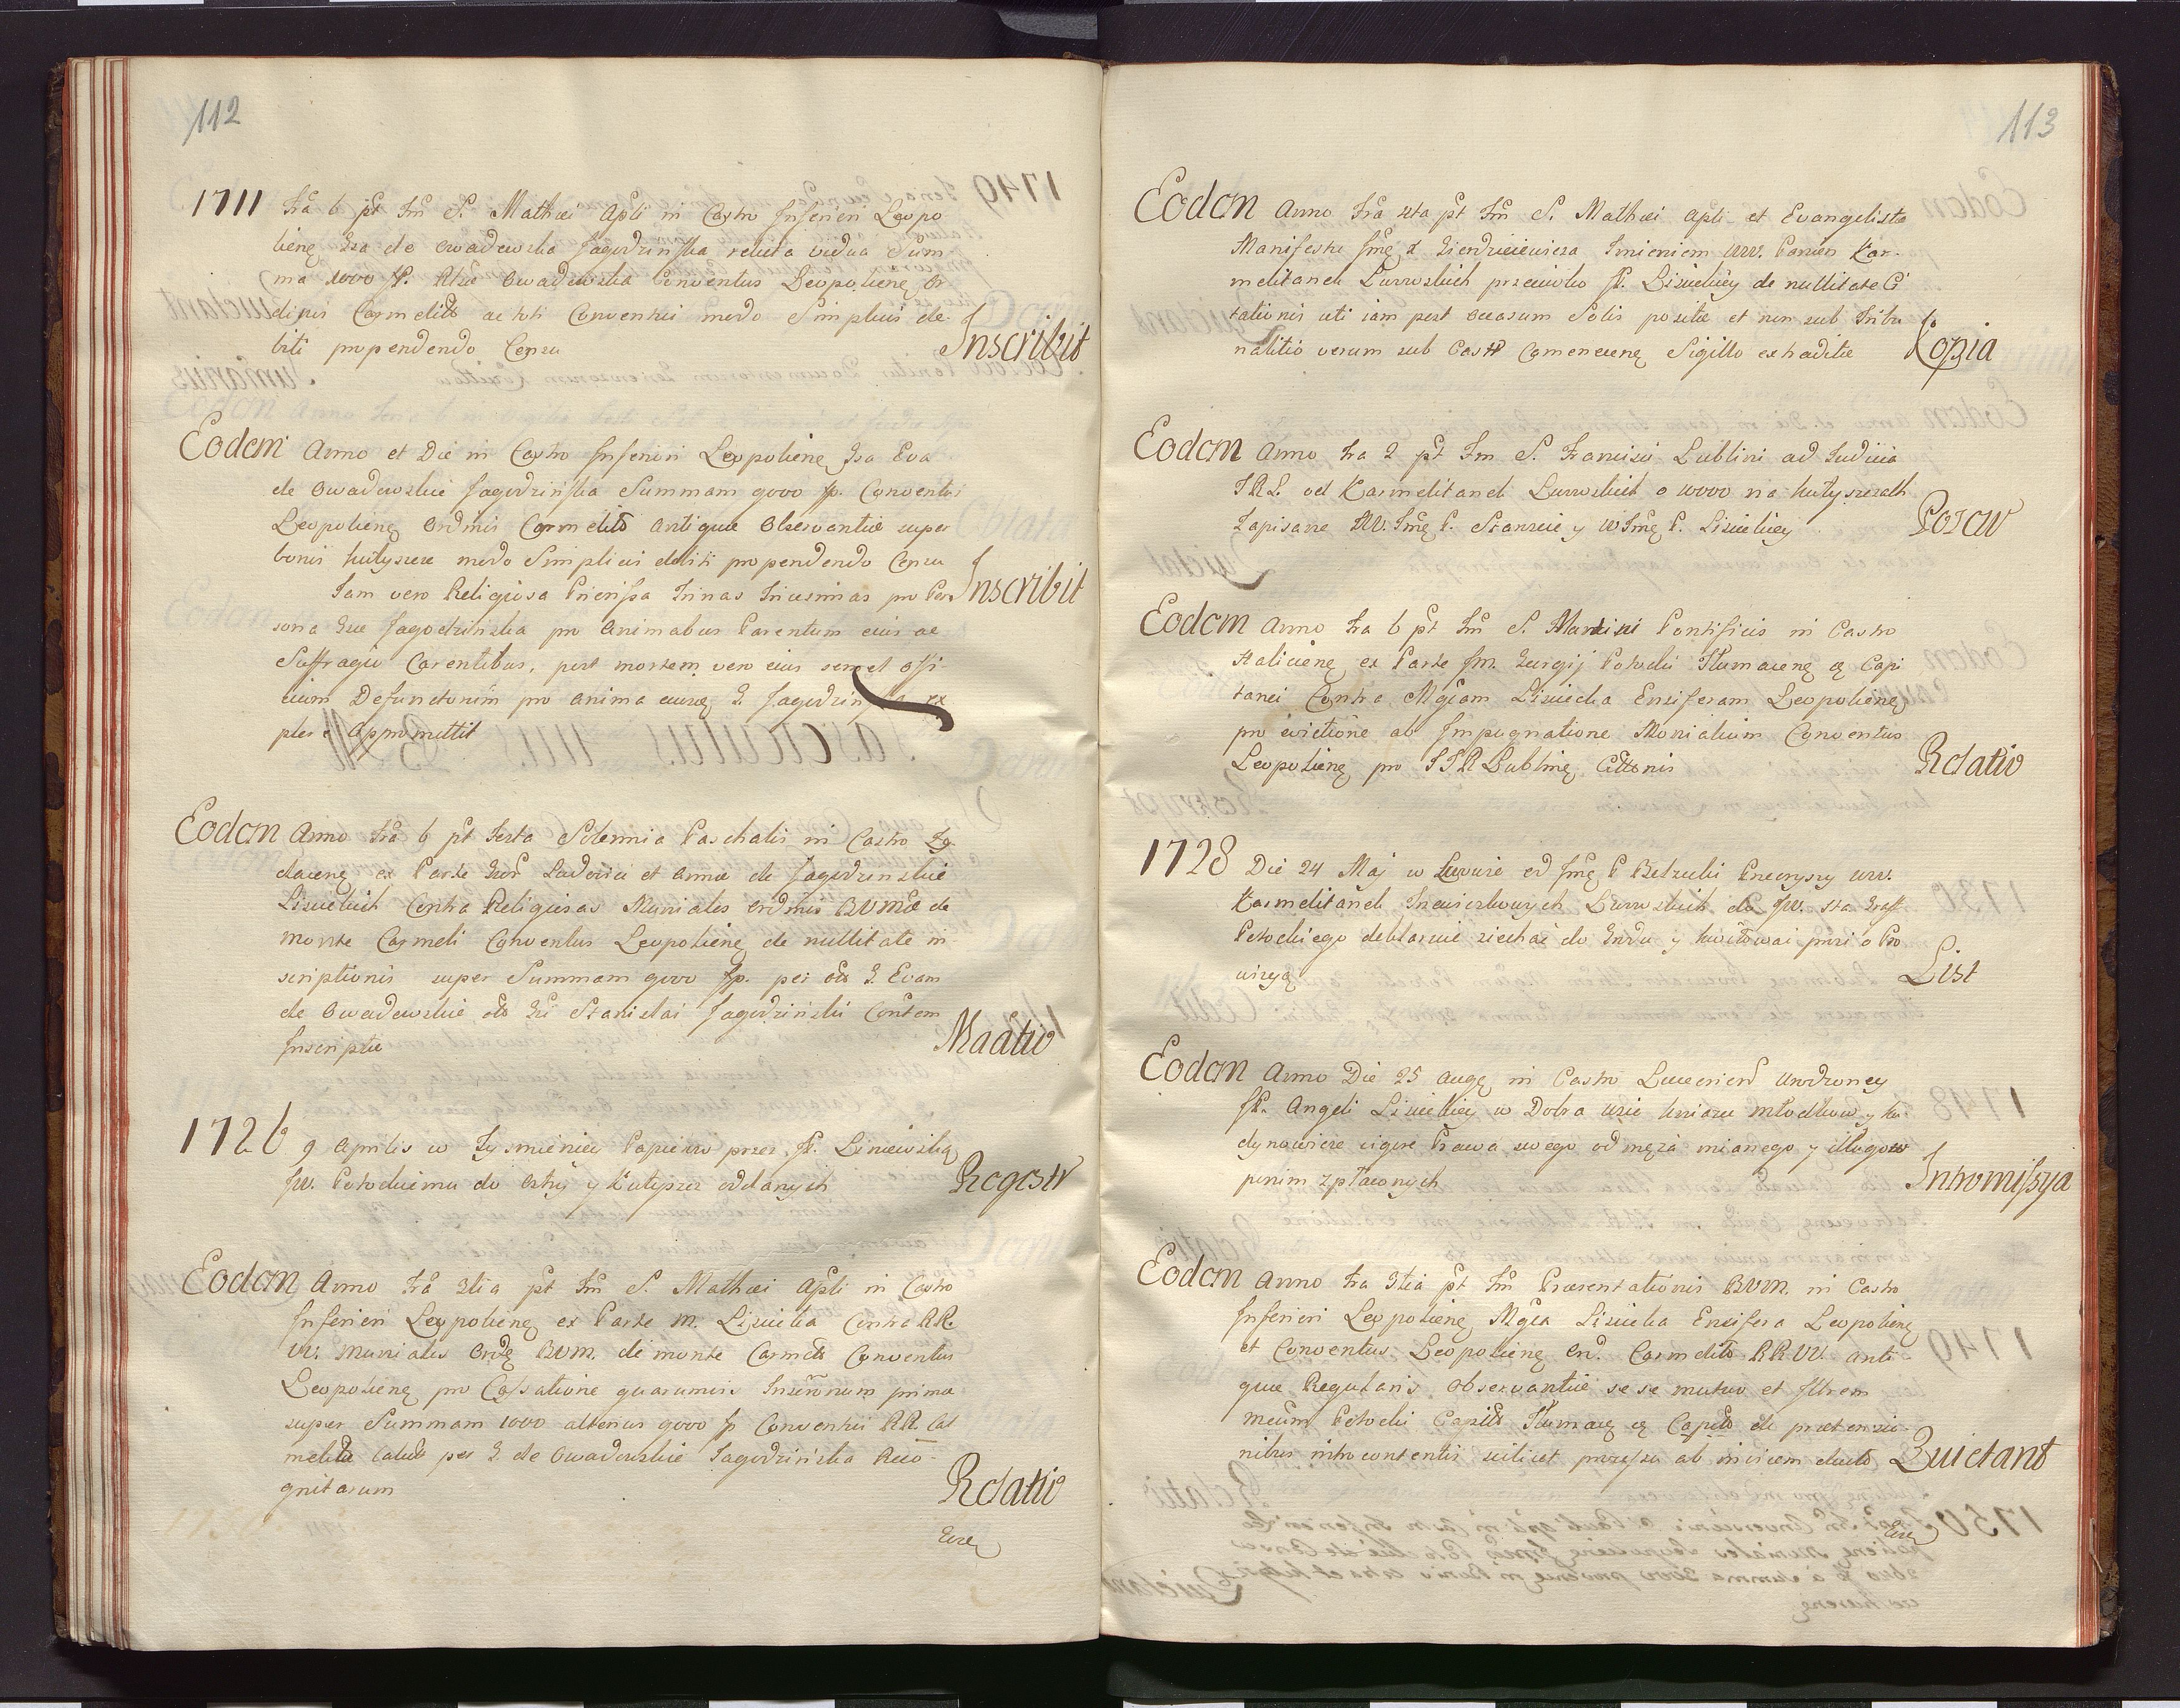 112
1711 Fra 6 pt Fm S. Mathæi Apli in Castro Inferiori Leopo
lieng Gsa de Owadewska Jagodzinska relicta vidua Sum
ma 1000 fp. Owadewska Conventus Leopolieng Or
dinis Carmelit ac toti Conventui modo Simplicis de
biti propendendo Censu Inscribit
Eodem Anno et Die in Castro Inferiori Leopolieng Gsa Eva
de Owadewskie Jagodzińska Summam 9000 fp. Conventui
Leopolieng Ordinis Carmelit Antiquæ Observantiæ super
bonis Hutyszcze modo Simplicis debiti propendendo Censu
Jam vero Religiosa Priorissa Trinas Tricesimas pro Per Inscribit
sona Gsæ Jagodzinska pro Animabus Parentum eius ac
Suffragio Carentibus, post mortem vero eius semel offi
cium Defunctorum pro anima eiusq G. Jagodzin ex
plere appromittit
Eodem Anno Fra 6 pt Festa Solemnia Paschalis in Castro Zy
daceng ex Parte Gsor Ludovici et Annæ de Jagodzinskie
Lisieckich Contra Religiosas Moniales Ordinis BVMæ de
Monte Carmeli Conventus Leopolieng de nullitate in
scriptionis super Summam 9000 fp. per G. Evam
de Owadewskie Gsi Stanislai Jagodzinski Contem
Inscriptæ Maatio
1726 9 Aprilis w Tysmienicy Papierow przez JP. Liniewską
JW. Potockiemu do Ostry y Hutyszcz oddanych Regestr
Eodem Anno Fra 3tia pt Fm S. Mathæi Apli in Castro
Inferiori Leopolieng ex Parte M. Lisiecka Contra RR.
VV. Moniales Ordg BVM. de monte Carmeli Conventus
Leopolieng pro Cassatione quarumvis Inscrõnum prima
super Summam 1000 alterius 9000 fp Conventui RR. Car
melit per G de Owadewskie Jagodzińska Reco-
gnitarum Relatio
113
Eodem Anno Fra 6ta pt Fm S. Mathæi Apli et Evangelista
Manifestu Jmę X Imieniem WW. Panien Kar-
melitanek Lwowskich przeciwko JP. Lisieckiey de nullitate Ci
tationis uti iam post occasum Solis positæ et non sub Tribu
nalitio verum sub Castr Cameneceng Sigillo extraditæ Kopia
Eodem Anno Fra 2 pt Fm S. Francisci Lublini ad Iudicia
TRL. od Karmelitanek Lwowskich o 10000 na Hutyszczach
Zapisane JW. Jmę P. Staroscie y WJmę P. Lisieckiey Pozew
Eodem Anno Fra 6 pt Fm S. Martini Pontificis in Castro
Halicieng ex Parte Jm. Georgij Potocki Tlumaceng Capi
tanei Contra Mgcam Lisiecka Ensiferam Leopolieng
pro evictione ab Impugnatione Monialium Conventus
Leopolieng pro TTR Lubling Cittonis Relatio
1728 Die 24 Maj w Lwowie od Jmę P Betzecki Przeoryszy WW.
Karmelitanek Trzewiczkowych Lwowskich do JW. Sta Graff
Potockiego deklaruie ziechać do Grodu y kwitować prosi o Pro
wizyą List
Eodem Anno Die 25 Augg in Castro Urodzoney
JP. Angeli Lisieckiey w Dobra wsie Kniaze Młodkow y Ka
dynowicze vigore Prawa swego od męża mianego y długow
ponim zpłaconych Intromissya
Eodem Anno Fra 3tia pt Fm Præsentationis BVM. in Castro
Inferiori Leopolieng Mgca Lisiecka Ensifera Leopolieng
et Conventus Leopolieng Ord. Carmelit RR VV. Anti
quæ Regularis Observantiæ se se mutuo et Illrem
Potocki Tlumacg Capit de prætensio-
nibus intro contentis scilicet processu ab invicem Quietant